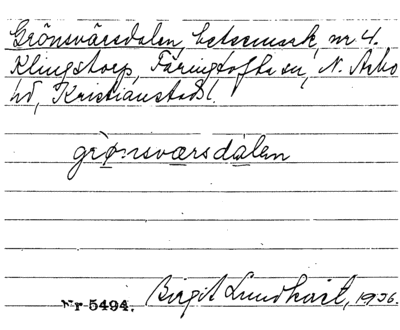 Grönsvärsdalen, betesmark, nr 4.
Klingstorp, Färingtofta sn, N. Åsbo
hd, Kristianstad l.
grønsværsdalen
Birgit Lundkvist, 1936.
Nr 5494.